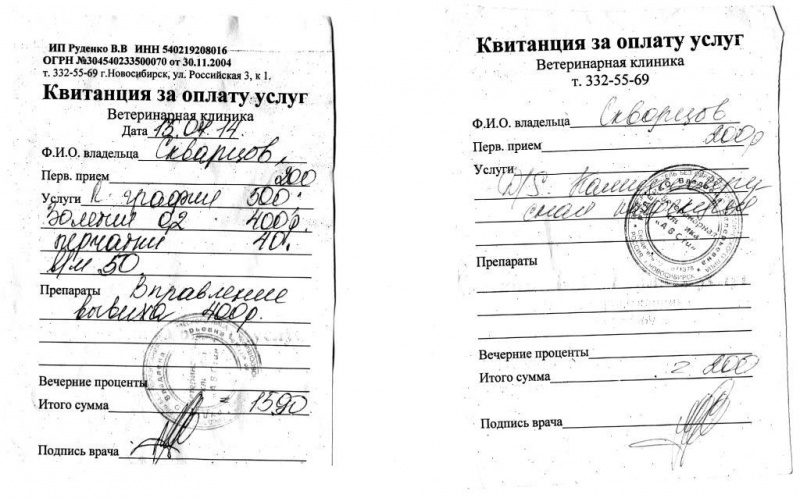 ИП Руденко В.В ИНН 540219208016
ОГРН №304540233500070 от 30.11.2004
т. 332-55-69 г.Новосибирск, ул. Российская 3, к 1.
Квитанция за оплату услуг
Ветеринарная клиника
Дата 15.04.14.
Ф.И.О. владельца Скварцов,
Перв. прием 200
Услуги R графия 500.
Золетил 0,2 400р.
перчатки 40.
в/м 50.
Препараты Вправление
вывиха 400р.
Вечерние проценты
Итого сумма 1590
Подпись врача
Квитанция за оплату услуг
Ветеринарная клиника
т. 332-55-69
Ф.И.О. владельца Скварцов
Перв. прием 200р
Услуги
D/S.
Препараты
Вечерние проценты
Итого сумма 200
Подпись врача